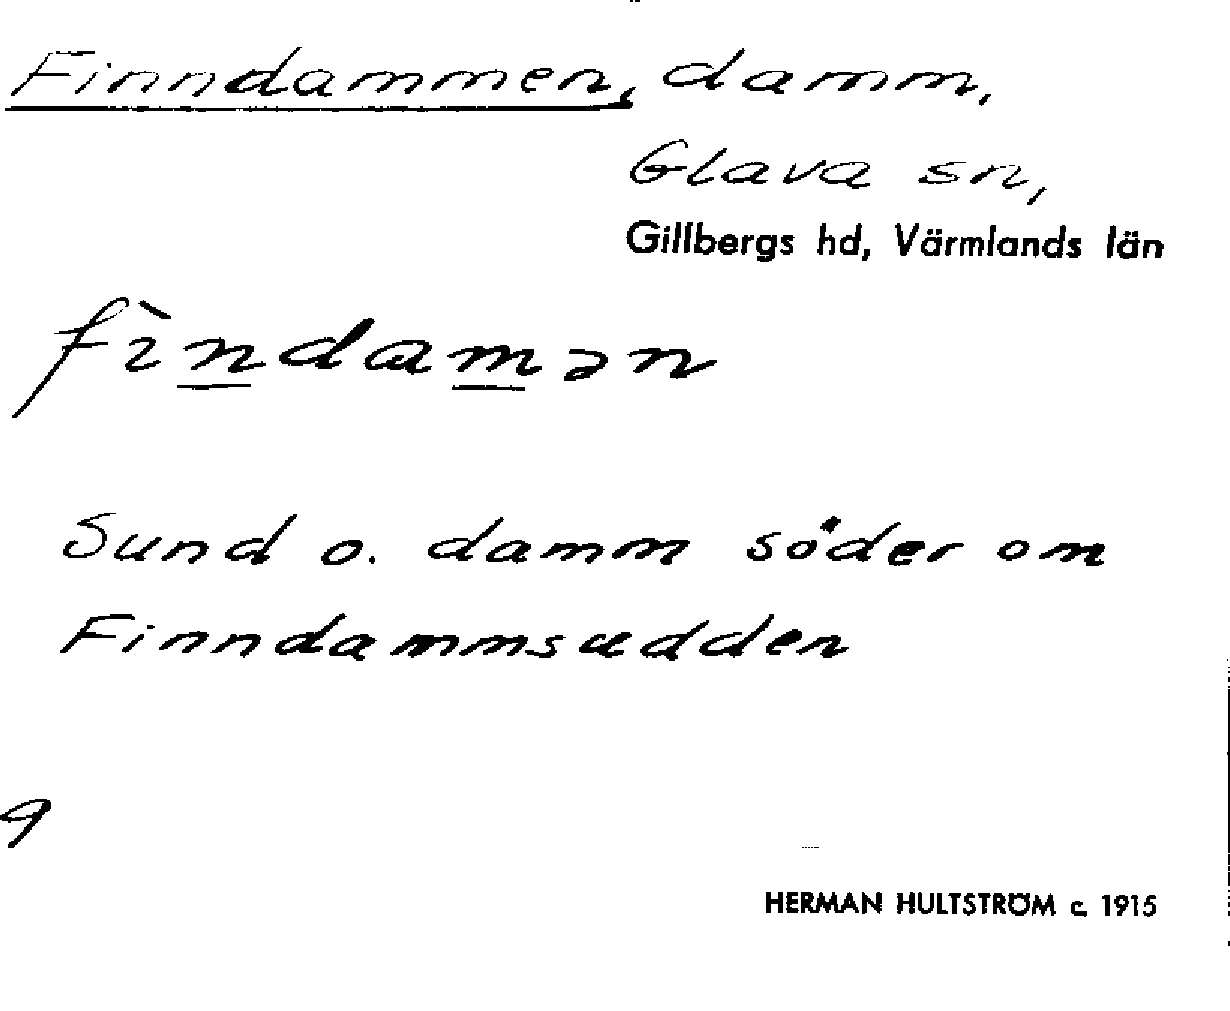 Finndammen, damm,
Glava sn,
Gillbergs hd, Värmlands län
fìndamən
Sund o. damm söder om
Finndammsudden
9
HERMAN HULTSTRÖM c. 1915